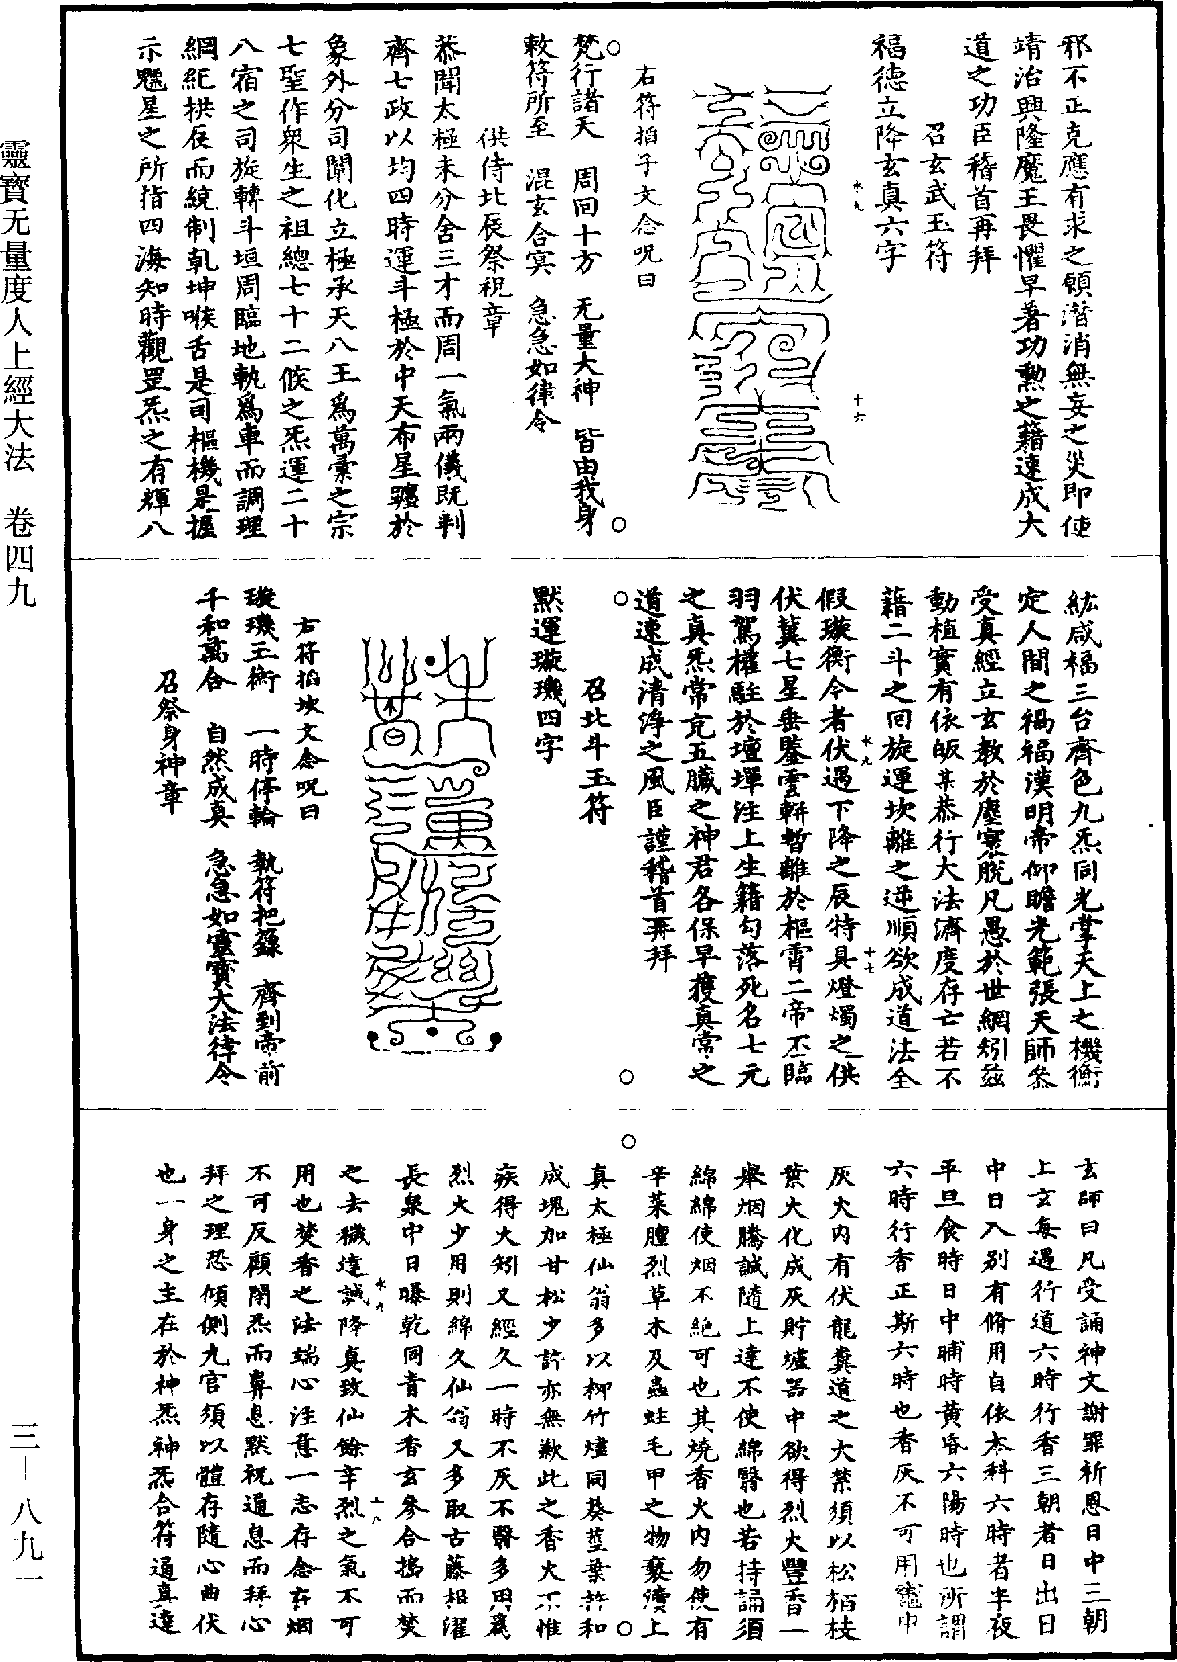 靈寶无量度人上經大法　卷四九
三—八九一
邪不正克應有求之願潛消無妄之災即使
靖治興隆魔王畏懼早著功勲之籍速成大
道之功臣稽首再拜
召玄武玉符
福德立降玄真六字
水九
十六
右符掐子文念呪曰
梵行諸天　周回十方　无量大神　皆由我身
敕符所至　混玄合冥　急急如律令
供侍北辰祭祝章
恭聞太極未分含三才而周一氣兩儀既判
齊七政以均四時運斗極於中天布星躔於
象外分司闡化立極承天八王爲萬彙之宗
七聖作衆生之祖總七十二候之炁運二十
八宿之司旋轉斗垣周臨地軌爲車而調理
綱紀拱辰而統制乾坤喉舌是司樞機是握
示魁星之所指四海知時觀罡炁之有輝八
紘咸福三台齊色九炁同光掌天上之機衡
定人間之禍福漢明帝仰瞻光範張天師叅
受真經立玄教於塵寰脫凡愚於世網矧茲
動植實有依皈某恭行大法濟度存亡若不
藉二斗之回旋運坎離之逆順欲成道法全
水九
十七
假璇衡今者伏遇下降之辰特具燈燭之供
伏冀七星垂鑒雲輧暫離於樞霄二帝丕臨
羽駕權駐於壇墠注上生籍勾落死名七元
之真炁常充五臟之神君各保早獲真常之
道速成清淨之風臣謹稽首再拜
召北斗玉符
默運璇璣四字
右符掐坎文念呪曰
璇璣玉衡　一時停輪　執符把籙　齊到帝前
千和萬合　自然成真　急急如靈寶大法律令
召祭身神章
玄師曰凡受誦神文謝罪祈恩日中三朝
上玄每遇行道六時行香三朝者日出日
中日入別有脩用自依本科六時者半夜
平旦食時日中晡時黃昏六陽時也所謂
六時行香正斯六時也香灰不可用竈中
灰火内有伏龍糞道之大禁須以松栢枝
葉火化成灰貯爐器中欲得烈火豐香一
舉烟騰誠隨上達不使綿翳也若持誦須
綿綿使烟不絶可也其燒香火内勿使有
辛菜膻烈草木及蟲蛀毛甲之物褻瀆上
真太極仙翁多以柳竹爐同葵莖葉許和
成塊加甘松少許亦無歉此之香火不惟
疾得火矧又經久一時不灰不翳多用爲
烈火少用則綿久仙翁又多取古藤根濯
長泉中日曝乾同青木香玄參合搗而焚
之去穢達誠降真致仙餘辛烈之氣不可
水九
十八
用也焚香之法端心注意一志存念在烟
不可反顧閉炁而鼻息默祝通息而拜心
拜之理恐傾側九宮須以體存隨心曲伏
也一身之主在於神炁神炁合符通真達